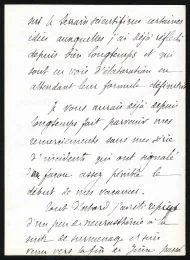 sur le terrain scientifique certaines
idées auxquelles j'ai déjà réfléchi
depuis bien longtemps et qui
sont en voie d'élaboration en
attendant leur formule définitive
Je vous aurais déjà depuis
longtemps fait parvenir mes
remerciements sans une série
d'incidents qui ont signalé
de façon assez pénible le
début de mes vacances.
Tout d'abord j'avais
d'un peu de neurasthénie à la
suite de surmenage et suis
venu vers la fin de Juin passé